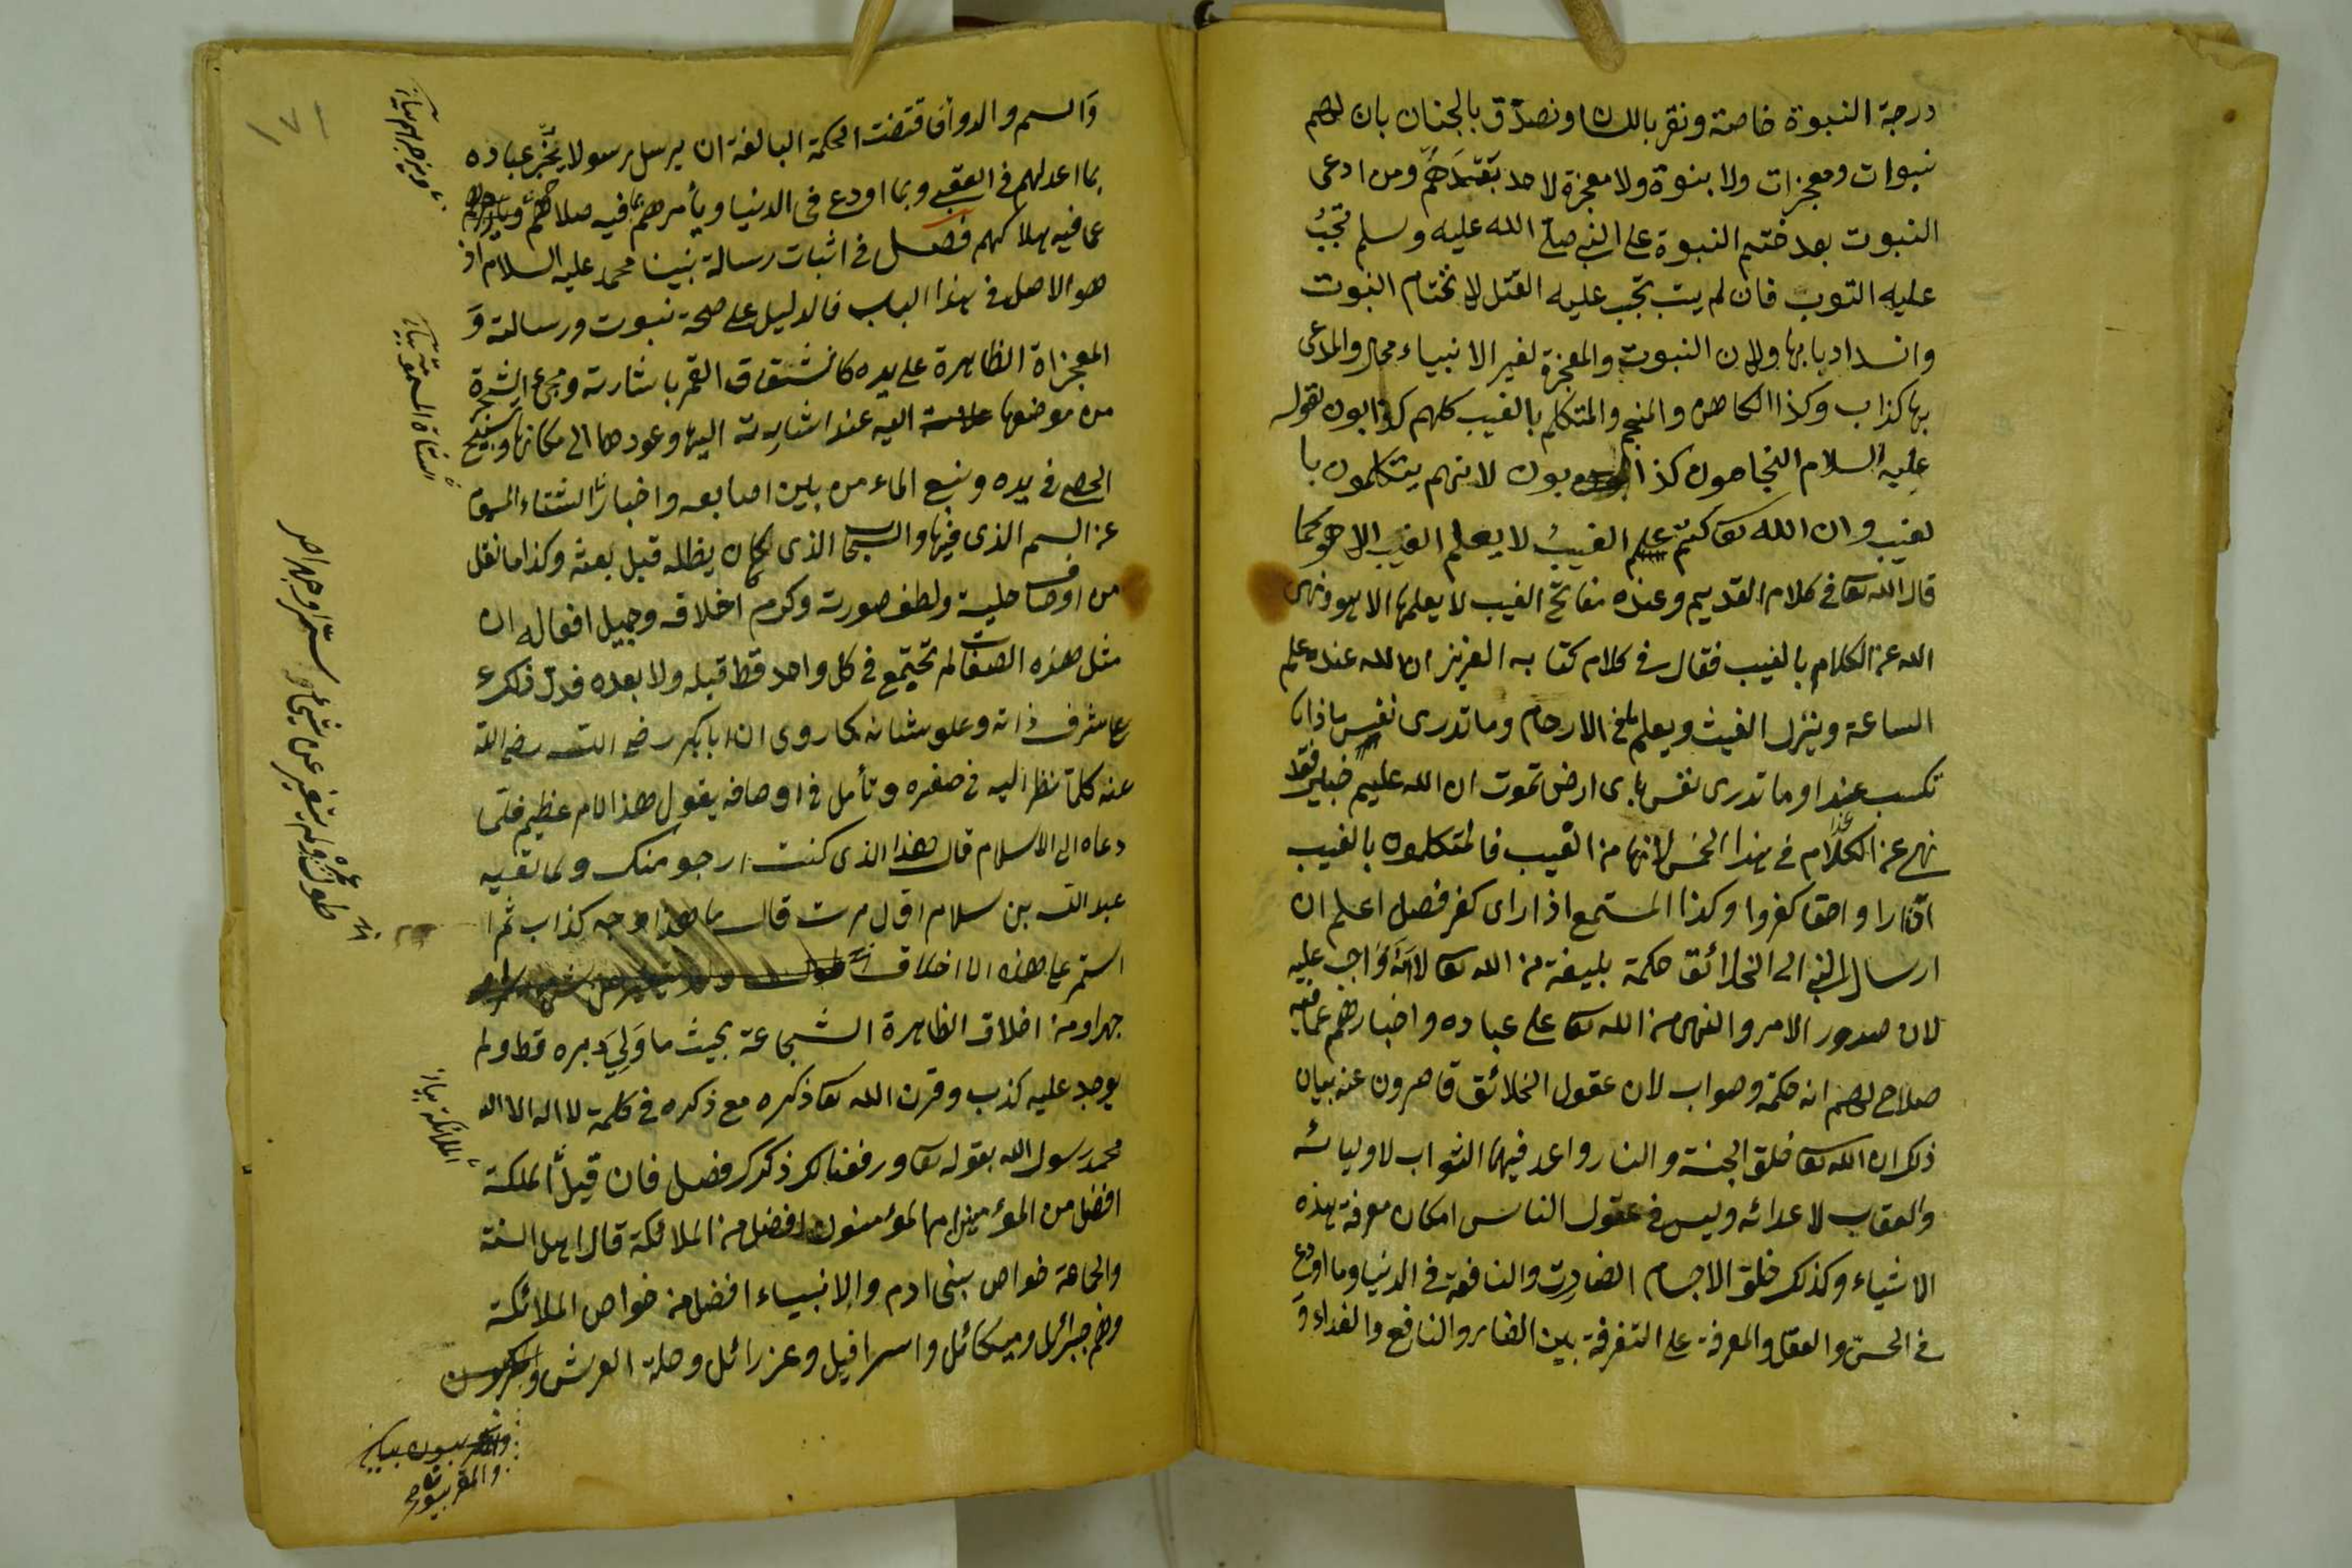 درجة النبوة خاصة ونقر باللسان ونصدق بالجنان بان لهم
نبوات ومعجزات ولا بنوة ولا معجزة لاحد بعدهم ومن ادعى
النبوت بعد ختم النبوة على النبي صلى الله عليه وسلم تجب
عليه التوب فان لم يتب تجب عليه القتل لاختتام النبوت
وانسداد بابها ولان النبوت والمعجزة لغير الانبياء محال والمدعى
بها كذاب وكذا الكاهن والمنجم والمتكلم بالغيب كلهم كذابون لقوله
عليه السلام النجامون كذابون لانهم يتكلمون با
لغيب وان الله تعا كتم علم الغيب لا يعلم الغيب الا هو كما
قال الله تعا في كلام القديم وعنده مفاتح الغيب لا يعلمها الا هو ونهى
الله عن الكلام بالغيب فقال في كلام كتابه العزيز ان الله عنده علم
الساعة وينزل الغيث ويعلم ما في الارحام وما تدرى نفس ماذا
تكسب غدا وما تدرى نفس باى ارض تموت ان الله عليم خبير فقد
نهى عن الكلام في هذا الخمس لانها من الغيب فالمتكلمون بالغيب
اذا راوا حقا كفروا وكذا المستمع اذا راى كفر فصل اعلم ان
ارسال النبي الى الخلائق حكمة بليغة من الله تعا لا انه واجب عليه
لان صدور الامر والنهى من الله تعا على عباده واخبارهم عما فيه
صلاح لهم انه حكمة وصواب لان عقول الخلائق قاصرون عنه بيان
ذلك ان الله تعا خلق الجنة والنار واعد فيهما الثواب لاوليائه
والعقاب لاعدائه وليس في عقول الناس امكان معرفة هذه
الاشياء وكذلك خلق الاجسام الضارت والنافعة في الدنيا وما اودع
في الحس والعقل والمعرفة على التفرقة بين الضار والنافع والغداء و
والسم والدوأ فاقتضت الحكمة البالغة ان يرسل رسولا يخبر عباده
بما اعد لهم في العقبى وبما اودع في الدنيا ويأمرهم بما فيه صلاحهم
عما فيه هلاكهم فصل في اثبات رسالة نبينا محمد عليه السلام اذ
هو الاصل في هذا الباب فالدليل على صحة نبوت ورسالته و
المعجزاة الظاهرة على يده كانشقاق القمر باشارته ومجئ الشجرة
من موضعها اليه عند اشارته اليها وعودهما الى مكانها وتسبيح
الحصى في يده ونبع الماء من بين اصابعه واخبار الشتاء المسموم
عن السم الذى فيها والسحاب الذى كان يظله قبل بعثه وكذا ما نقل
من اوصاف حليه ولطف صورته وكرم اخلاقه وجميل افعاله ان
مثل هذه الصفات لم تجتمع في كل واحد قط قبله ولا بعده فدل ذلك
على شرف ذاته وعلو شانه كما روى ان ابا بكر رضى الله
عنه كلما نظر اليه في صغره وتأمل في اوصافه يقول هذا لامر عظيم فلما
دعاه الى الاسلام قال هذا الذى كنت ارجو منك ولما لقيه
عبد الله بن سلام اول مرت قال ما هذا وجه كذاب ثم
استمر على هذه الاخلاق
جهرا ومن اخلاق الظاهرة الشجاعة بحيث ما ولى دبره قط ولم
يوجد عليه كذب وقرن الله تعا ذكره مع ذكره في كلمة لا اله الا الله
محمد رسول الله بقوله تعا ورفعنا لك ذكرك فصل فان قيل الملكة
افضل من المؤمنين ام المؤمنون افضل من الملائكة قال اهل السنة
والجماعة خواص بنى ادم والانبياء افضل من خواص الملائكة
وهم جبرائل وميكائل واسرافيل وعزرائل وحملة العرش
طول عمره ولم يتغير عن شئ سترا وجهرا
الملائكة